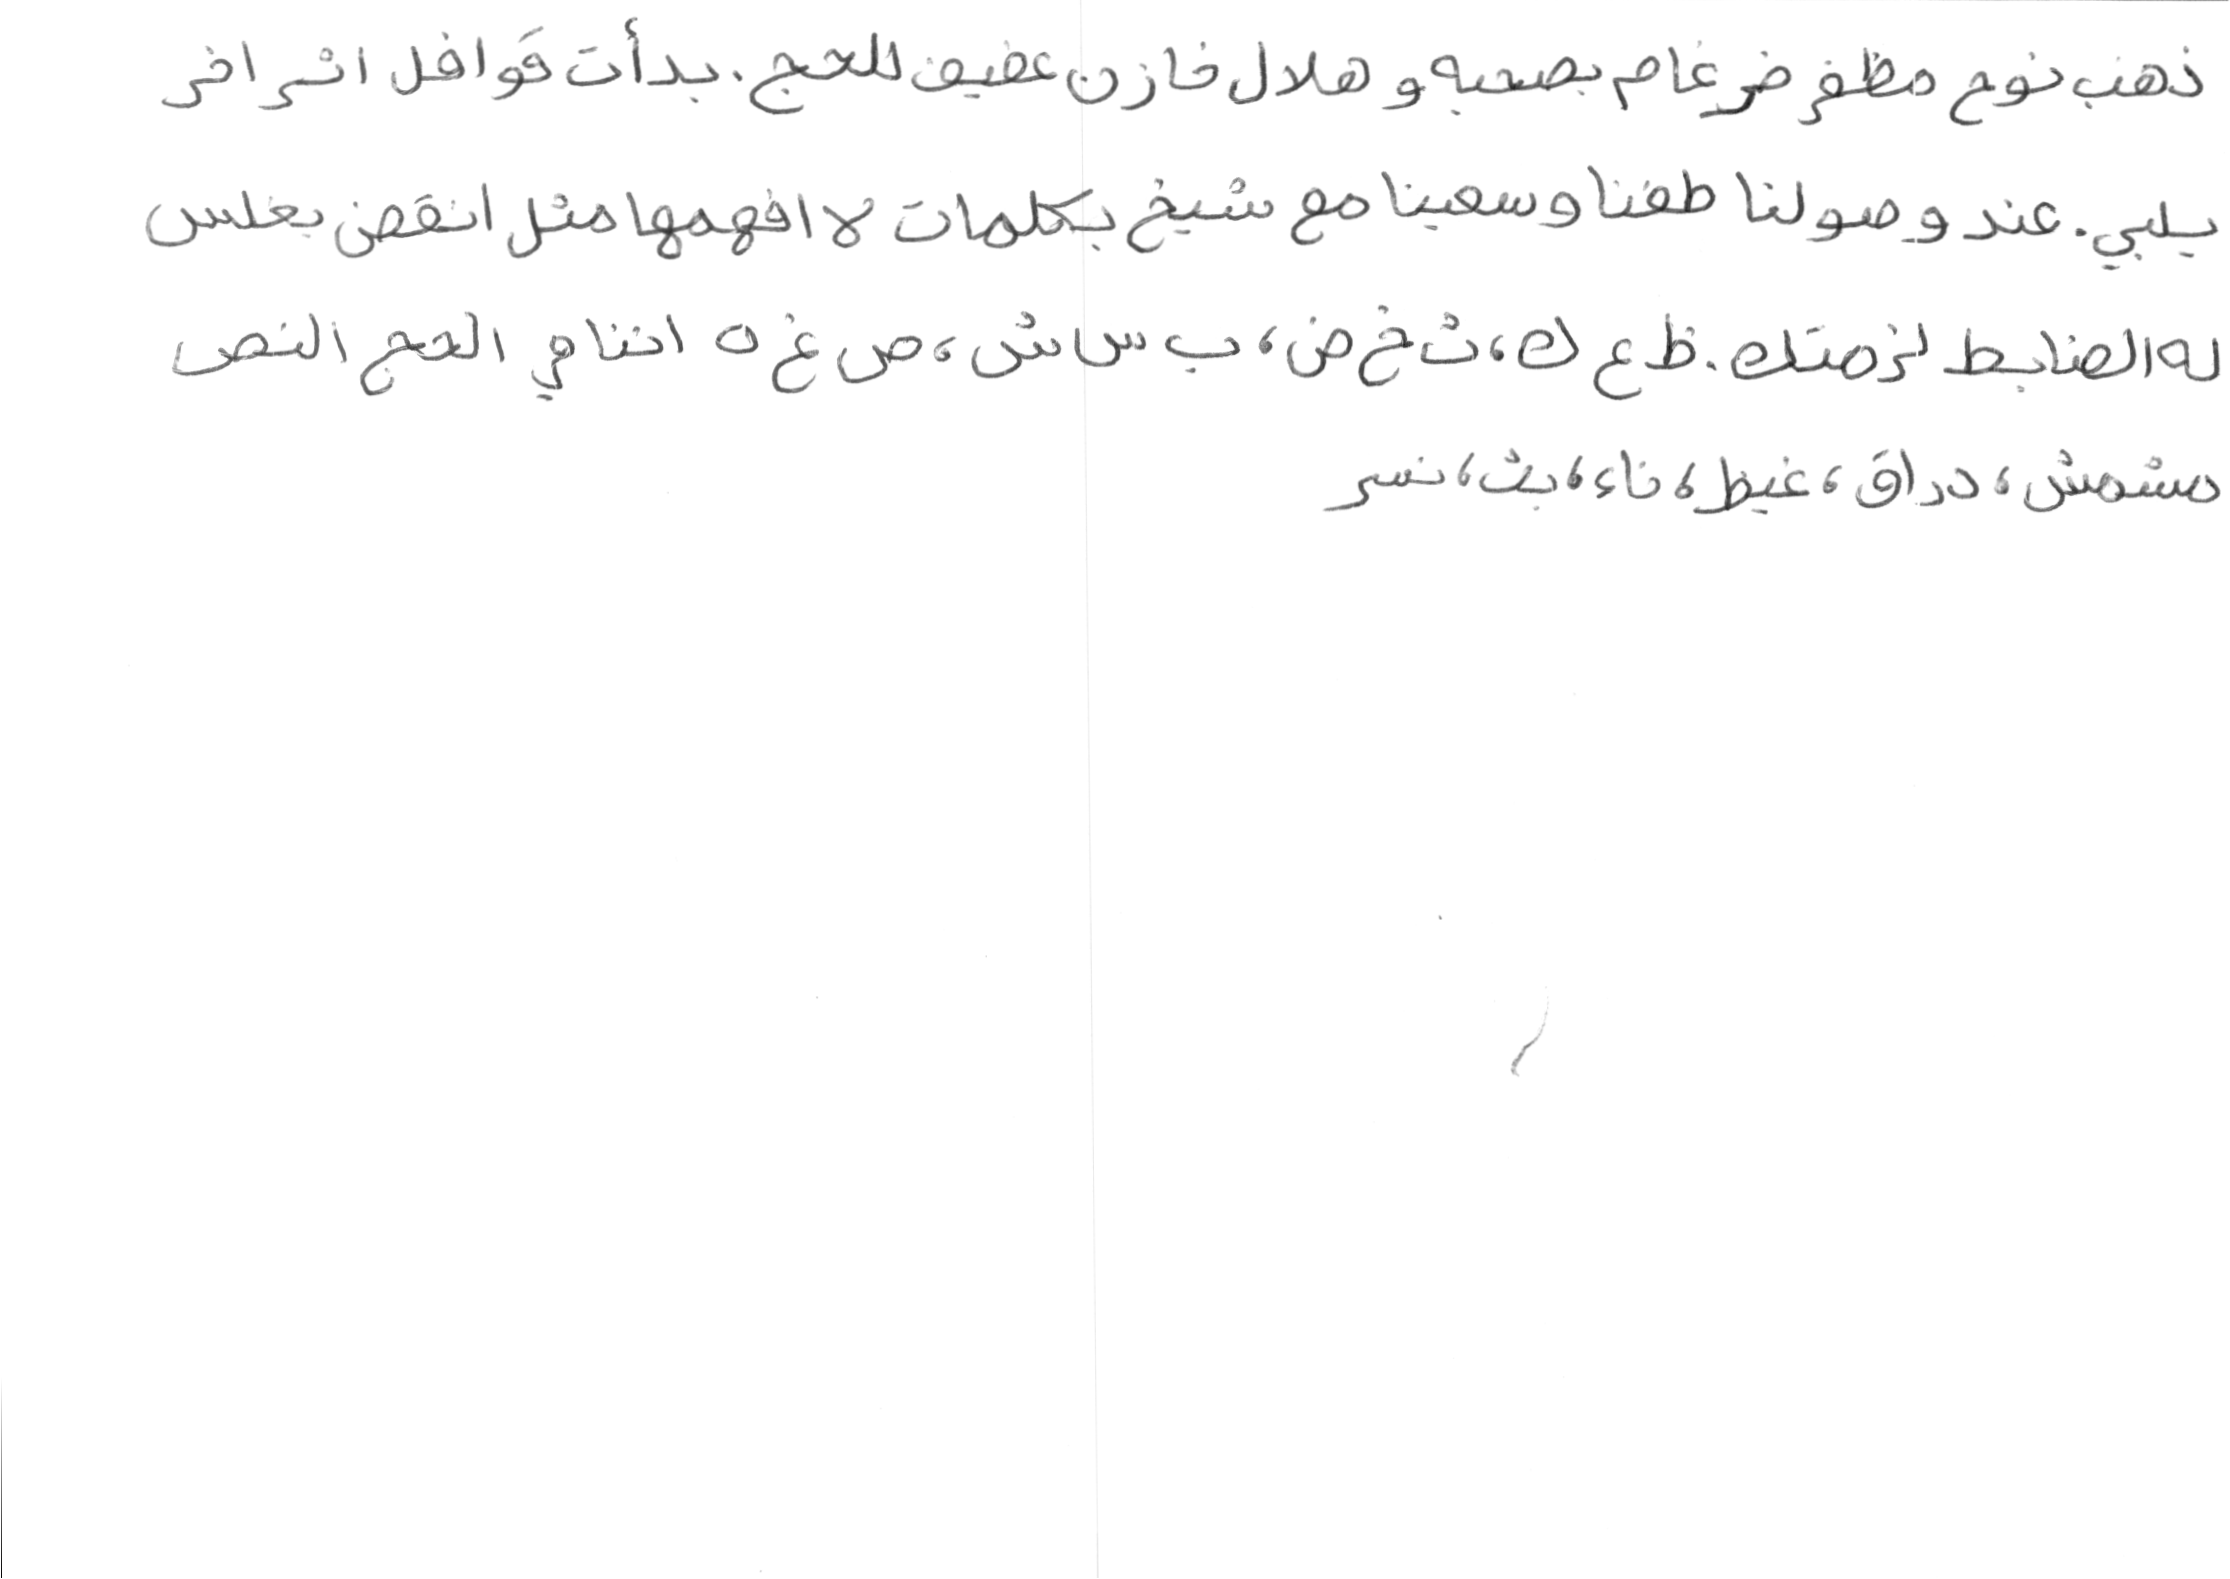 ذهب نوح مظفر ضرغام بصحبه و هلال خازن عفيف للحج. بدأت قوافل اثر اخر
يلبي. عند وصولنا طفنا وسعينا مع شيخ بكلمات لا افهمها مثل انقض بغلس
له الضابط لزمتك. ظ ع ك، ث خ ض، ب س ش، ص غ ه اثنا في الحج النص
مشمش، دراق، غيظ، ناء، بث، نسر